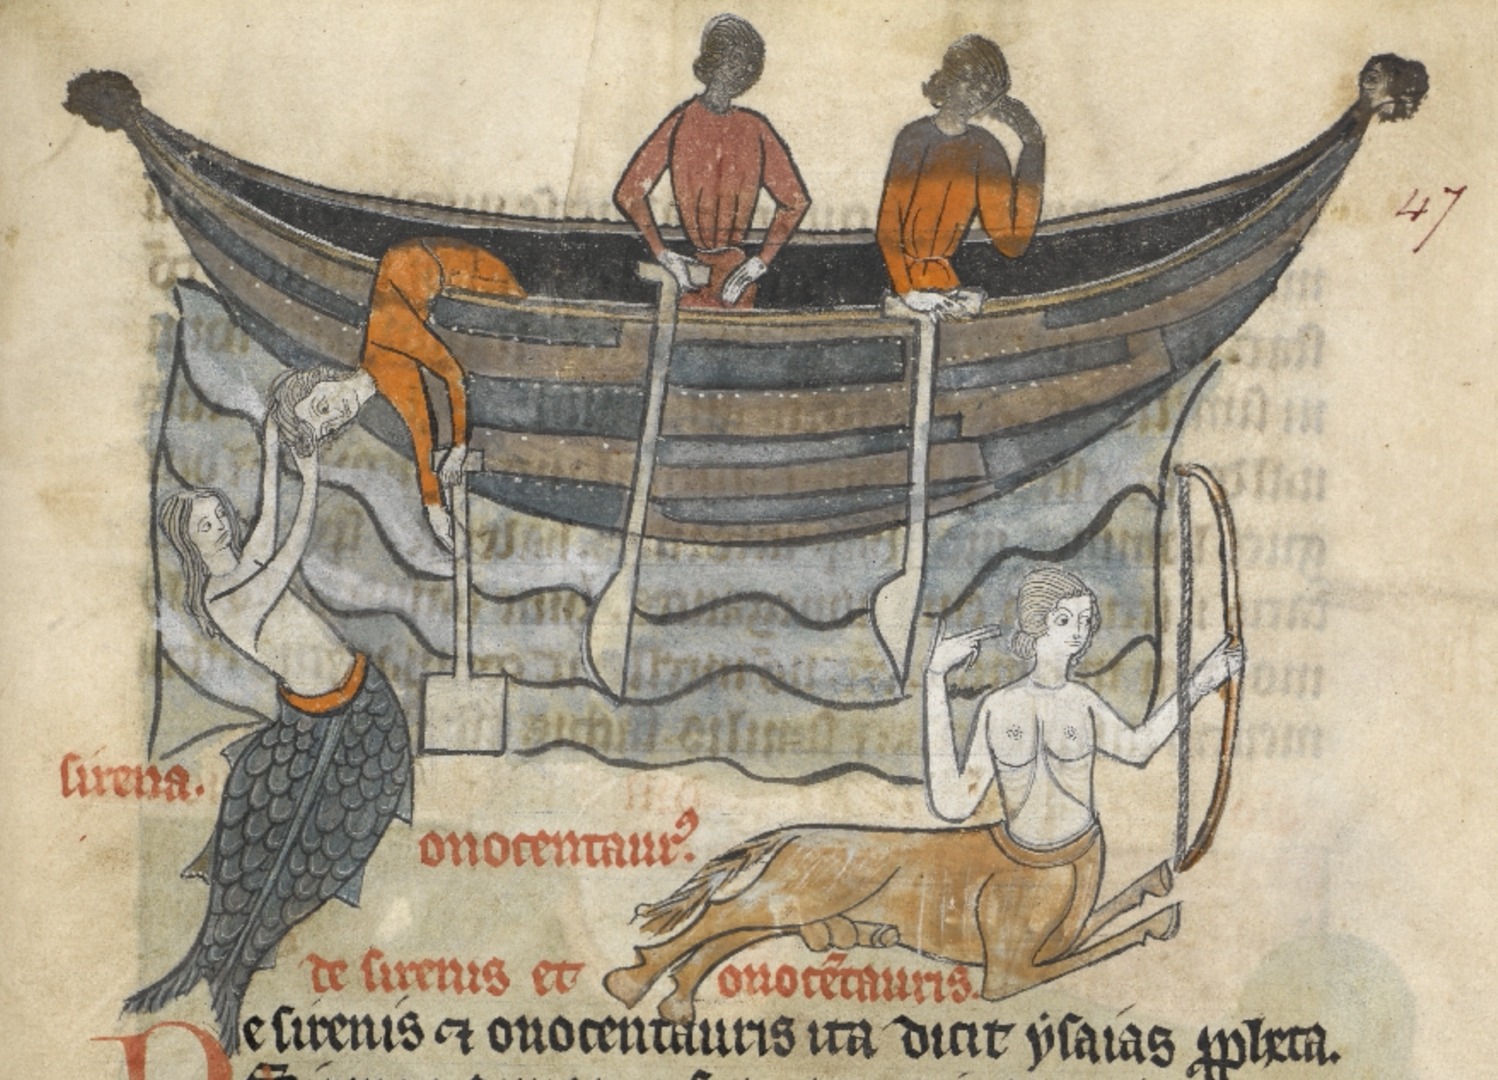 47
sirena.
onocentaurꝰ.
de sirenis et onocẽtauris.
De sirenis ⁊ onocentauris ita dicit ysaias ꝓpheta.